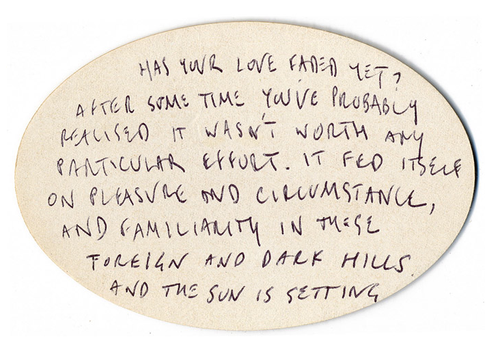 HAS YOUR LOVE FADED YET?
AFTER SOME TIME YOU'VE PROBABLY
REALISED IT WASN'T WORTH ANY
PARTICULAR EFFORT. IT FED ITSELF
ON PLEASURE AND CIRCUMSTANCE,
AND FAMILIARITY IN THESE
FOREIGN AND DARK HILLS.
AND THE SUN IS SETTING